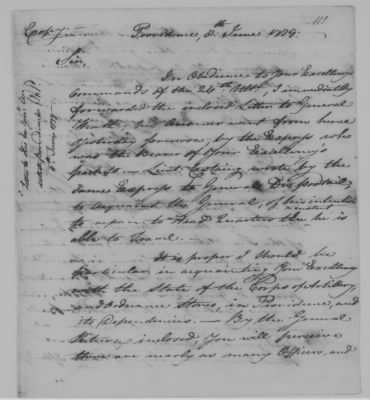 Copy
Providence, 8th June 1779.
Sir,
In Obedience to Your Excellency's
Commands of the 24th Ulto, I immediately
forwarded the inclosed Letter to General
his Answer went from hence
Yesterday forenoon, by the Express who
was the Bearer of Your Excellency's
Lieut. wrote by the
same Express to General
to acquaint the General, of his intention
to repair to Head Quarters when he is
able to Travel.
It is proper I should be
particular in acquainting Your Excellency
with the State of the Corps of Artillery,
and Ordnance Stores, in Providence, and
its Dependencies. — By the General
Return, inclosed, You will perceive
there are nearly as many Officers, and